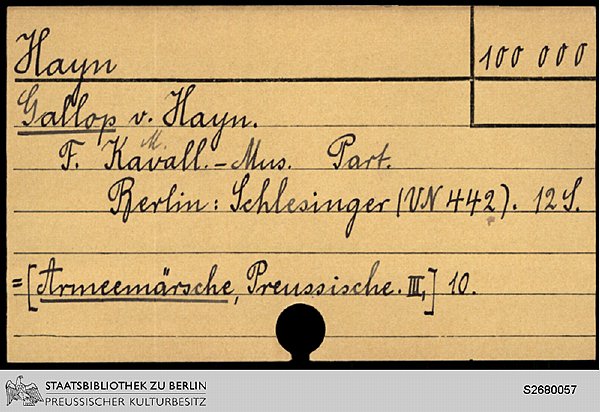 Hayn
100 000
Gallop v. Hayn.
M.
F. Kavall.-Mus. Part.
Berlin: Schlesinger (VN 442). 12 S.
=[Armeemärsche, Preussische. III,] 10.
STAATSBIBLIOTHEK ZU BERLIN
PREUSSISCHER KULTURBESITZ
S2680057